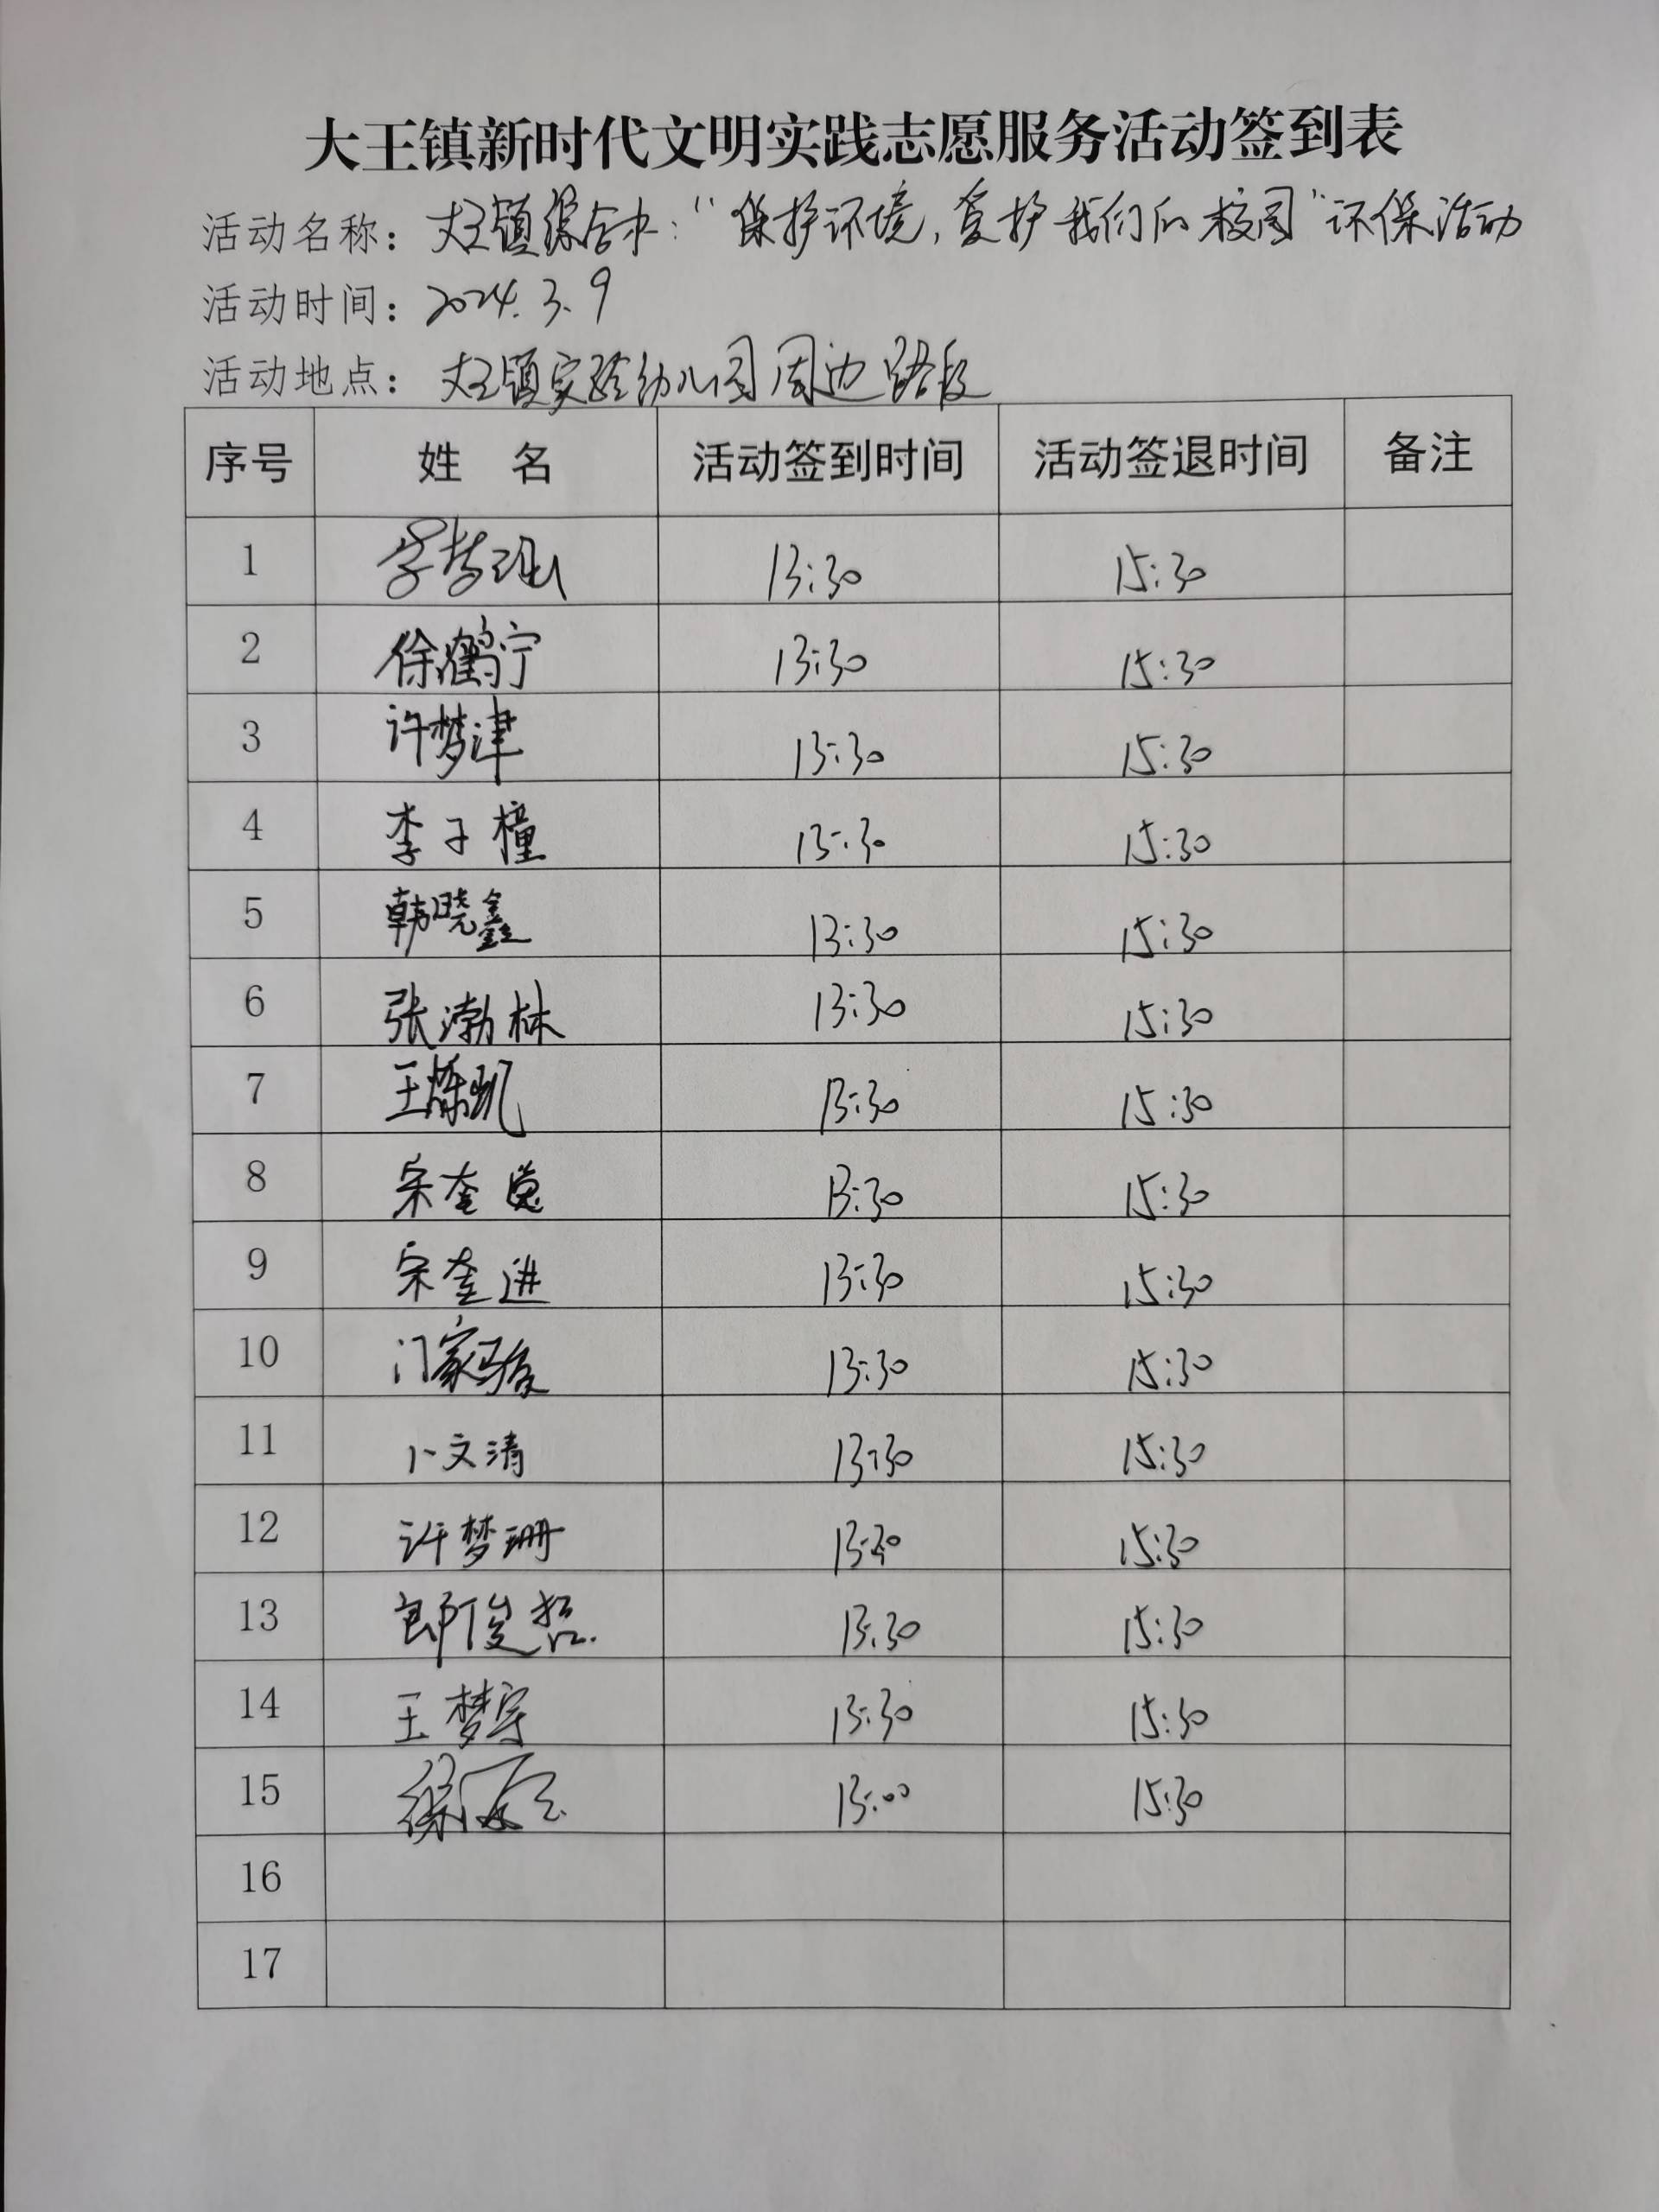 大王镇新时代文明实践志愿服务活动签到表
活动名称：大王镇综合办："保护环境，爱护我们的校园"环保活动
活动时间：2024.3.9
活动地点：大王镇实验幼儿园周边路段
序号 姓 名 活动签到时间 活动签退时间 备注
1 13:30 15:30
2 徐鹤宁 13:30 15:30
3 许梦津 13:30 15:30
4 李子橦 13:30 15:30
5 韩晓鑫 13:30 15:30
6 张渤林 13:30 15:30
7 王烁凯 13:30 15:30
8 宋奎总 13:30 15:30
9 宋奎进 13:30 15:30
10 门家骏 13:30 15:30
11 卜文清 13:30 15:30
12 许梦珊 13:30 15:30
13 郎俊哲 13:30 15:30
14 王梦宇 13:30 15:30
15 徐 13:00 15:30
16
17